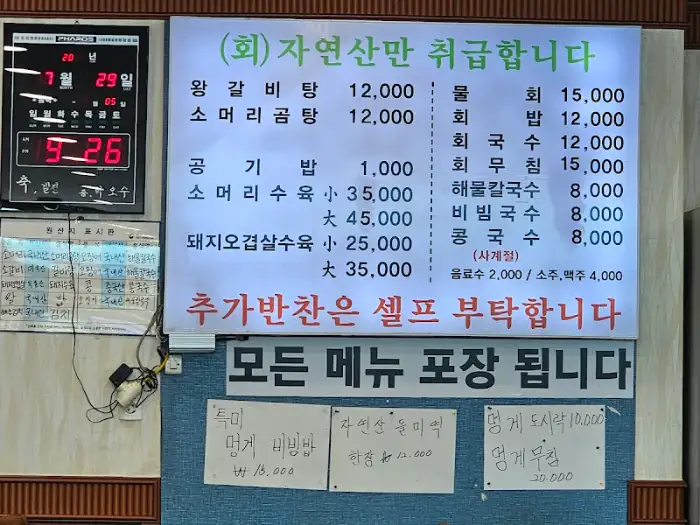 (회) 자연산만 취급합니다
왕갈비탕 12,000
소머리곰탕 12,000
공기밥 1,000
소머리수육 小 35,000
大 45,000
돼지오겹살수육 小 25,000
大 35,000
물회 15,000
회밥 12,000
회국수 12,000
회무침 15,000
해물칼국수 8,000
비빔국수 8,000
콩국수 8,000
(사계절)
음료수 2,000 / 소주,맥주 4,000
추가반찬은 셀프 부탁합니다
모든 메뉴 포장 됩니다
특미
멍게 비빔밥
₩ 13,000
자연산 돌미역
한장 ₩ 12,000
멍게 도시락 10,000
멍게무침
20,000
20 년
7월 29일
05
일월화수목금토
9 26
축, 발전
원산지 표시판